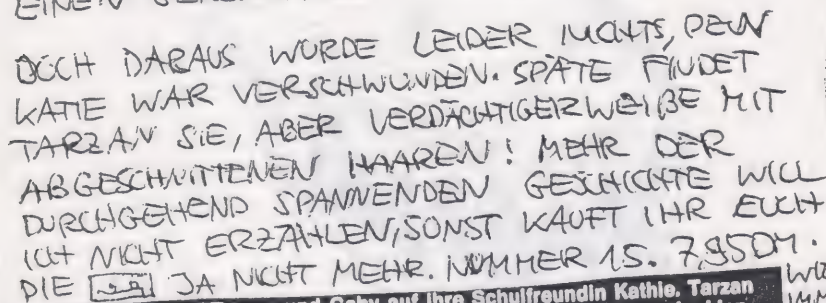 EINEN
DOCH DARAUS WURDE LEIDER NICHTS, DENN
KATIE WAR VERSCHWUNDEN. SPÄTE FINDET
TARZAN SIE, ABER VERDÄCHTIGERWEIßE MIT
ABGESCHNITTENEN HAAREN! MEHR DER
DURCHGEHEND SPANNENDEN GESCHICHTE WILL
ICH NICHT ERZÄHLEN, SONST KAUFT IHR EUCH
DIE JA NICHT MEHR. NUMMER 15. 7,95DM.
Gaby auf ihre Schulfreundin Kathie. Tarzan